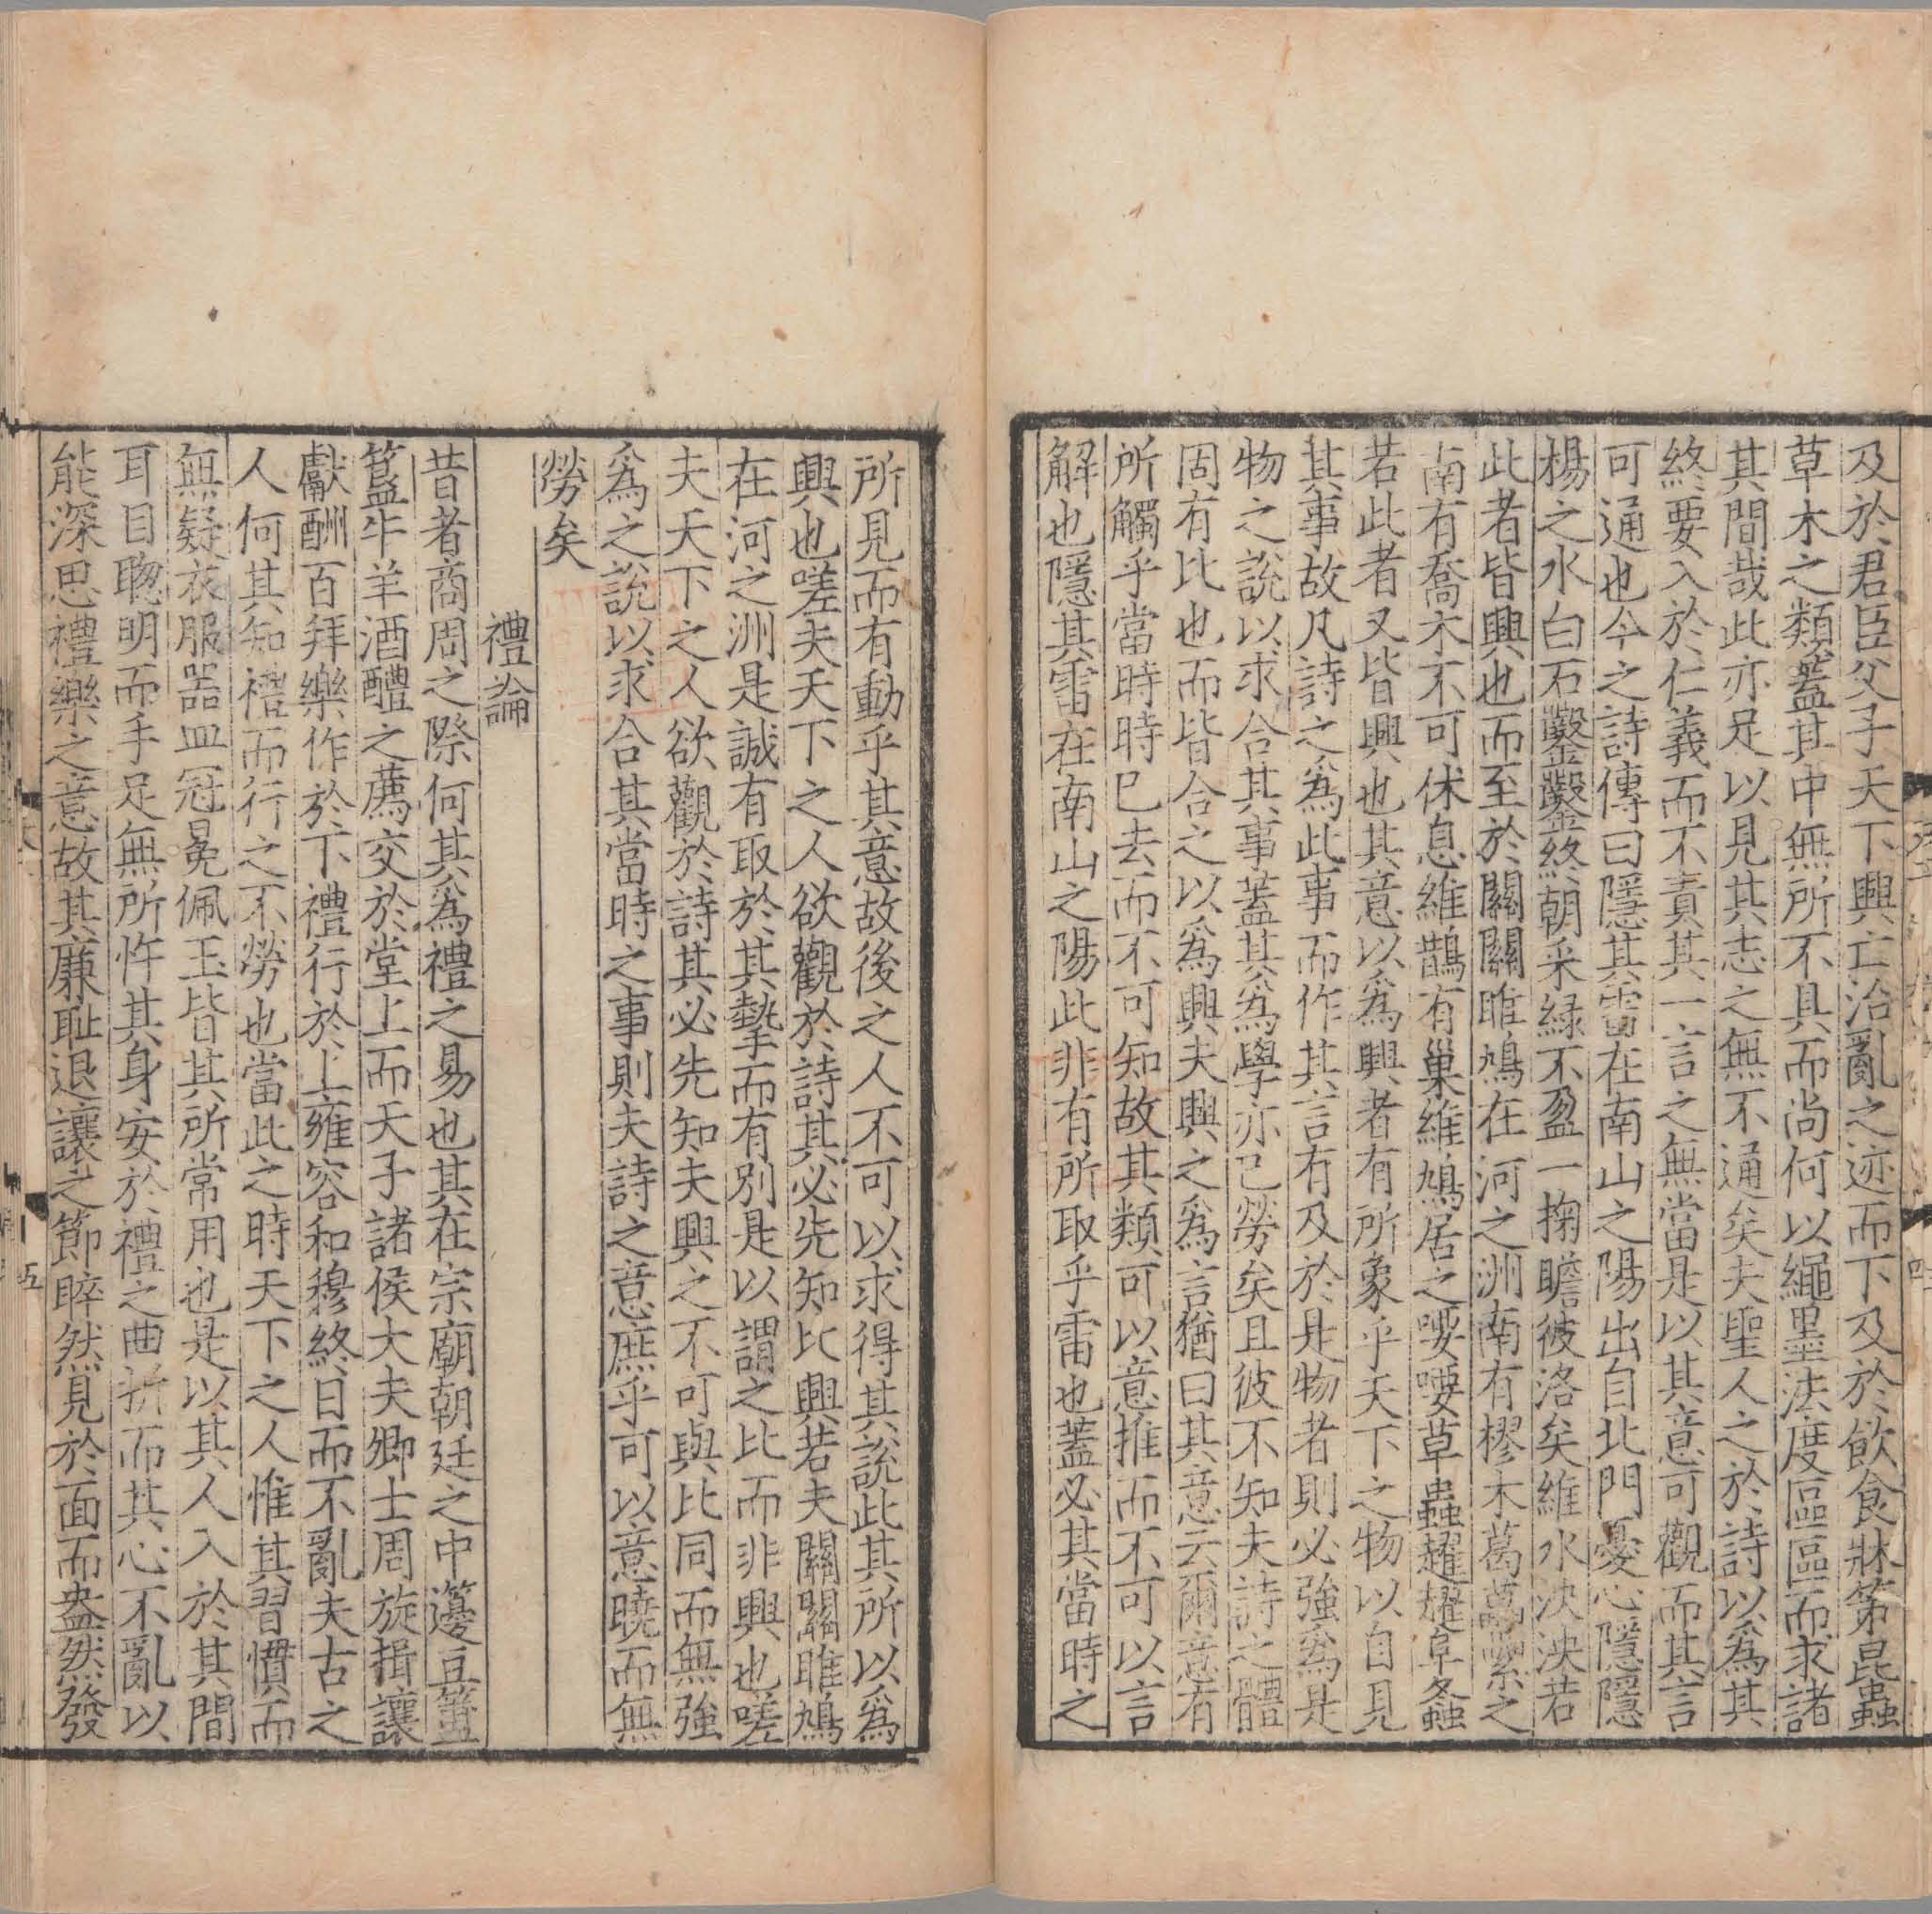 及於君臣父子天下興亡治亂之迹而下及於飲食牀笫昆蟲
草木之類蓋其中無所不具而尚何以繩墨法度區區而求諸
其間哉此亦足以見其志之無不通矣夫聖人之於詩以為其
終要入於仁義而不責其一言之無當是以其意可觀而其言
可通也今之詩傳曰隱其雷在南山之陽出自北門憂心隱隱
楊之水白石鑿鑿終朝采緑不盈一掬瞻彼洛矣維水泱泱若
此者皆興也而至於關關雎鳩在河之洲南有樛木葛藟縈之
南有喬木不可休息維鵲有巢維鳩居之喓喓草蟲趯趯阜螽
若此者又皆興也其意以為興者有所象乎天下之物以自見
其事故凡詩之為此事而作其言有及於是物者則必強為是
物之說以求合其事蓋其為學亦已勞矣且彼不知夫詩之體
固有比也而皆合之以為興夫興之為言猶曰其意云爾意有
所觸乎當時時已去而不可知故其類可以意推而不可以言
解也隱其雷在南山之陽此非有所取乎雷也蓋必其當時之
所見而有動乎其意故後之人不可以求得其說此其所以為
興也嗟夫天下之人欲觀於詩其必先知比興若夫關關雎鳩
在河之洲是誠有取於其摯而有別是以謂之比而非興也嗟
夫天下之人欲觀於詩其必先知夫興之不可與比同而無強
為之說以求合其當時之事則夫詩之意庶乎可以意曉而無
勞矣
禮論
昔者商周之際何其為禮之易也其在宗廟朝廷之中籩豆簠
簋牛羊酒醴之薦交於堂上而天子諸侯大夫卿士周旋揖讓
獻酬百拜樂作於下禮行於上雍容和穆終日而不亂夫古之
人何其知禮而行之不勞也當此之時天下之人惟其習慣而
無疑衣服器皿冠冕佩玉皆其所常用也是以其人入於其間
耳目聦明而手足無所忤其身安於禮之曲折而其心不亂以
能深思禮樂之意故其廉恥退讓之節睟然見於面而盎然發